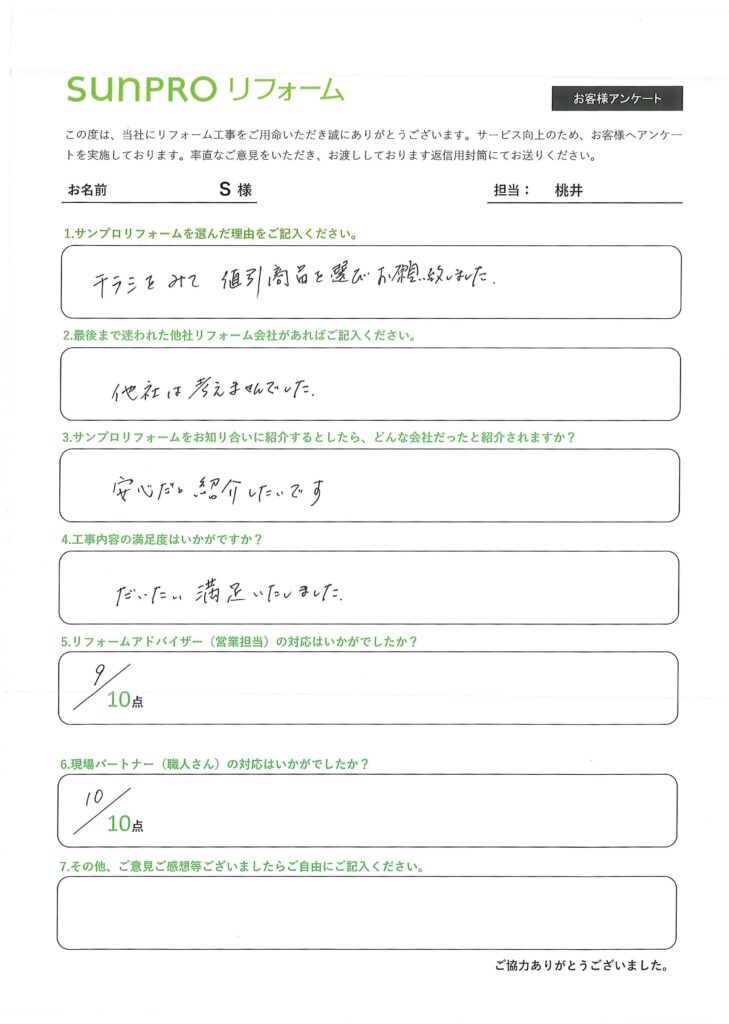 sunPRO リフォーム
お客様アンケート
この度は、当社にリフォーム工事をご用命いただき誠にありがとうございます。サービス向上のため、お客様へアンケー
トを実施しております。率直なご意見をいただき、お渡ししております返信用封筒にてお送りください。
お名前 S 様 担当： 桃井
1.サンプロリフォームを選んだ理由をご記入ください。
チラシをみて 値引商品を選びお願い致しました.
2.最後まで迷われた他社リフォーム会社があればご記入ください。
他社は考えませんでした.
3.サンプロリフォームをお知り合いに紹介するとしたら、どんな会社だったと紹介されますか？
安心だと紹介したいです
4.工事内容の満足度はいかがですか？
だいたい満足いたしました.
5.リフォームアドバイザー（営業担当）の対応はいかがでしたか？
9/10点
6.現場パートナー（職人さん）の対応はいかがでしたか？
10/10点
7.その他、ご意見ご感想等ございましたらご自由にご記入ください。
ご協力ありがとうございました。